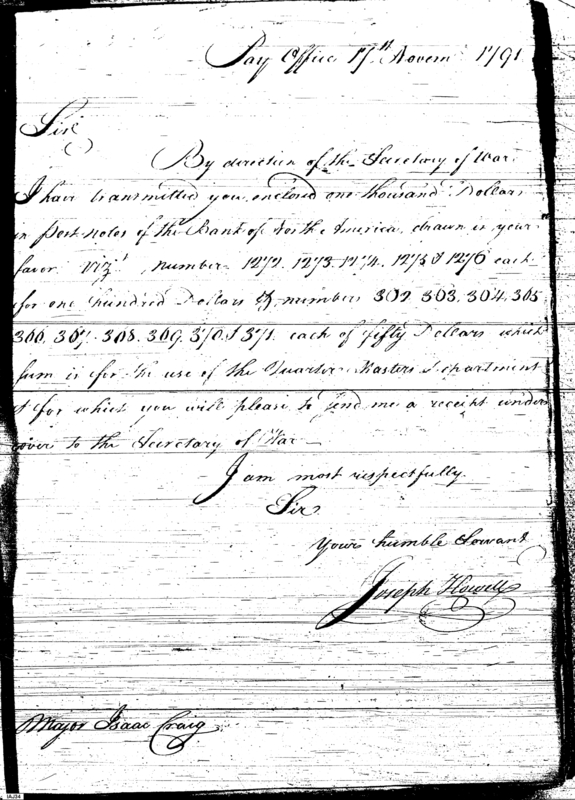 Pay Office 17th Novem 1791
Sir
By direction of the Secretary of War
I have transmitted you enclosed one thousand Dollars
in post notes of the Bank of North America drawn in your
favor Vizt number 1272. 1273. 1274. 1275 & 1276 each
for one hundred Dollars & numbers 302. 303. 304. 305
306. 307. 308. 309. 370 & 371. each of fifty Dollars which
sum is for the use of the Quarter Masters Department
& for which you will please to send me a receipt under
cover to the Secretary of War
I am most respectfully
Sir
Yours humble Servant
Joseph Howell
Major Isaac Craig
IAJ34